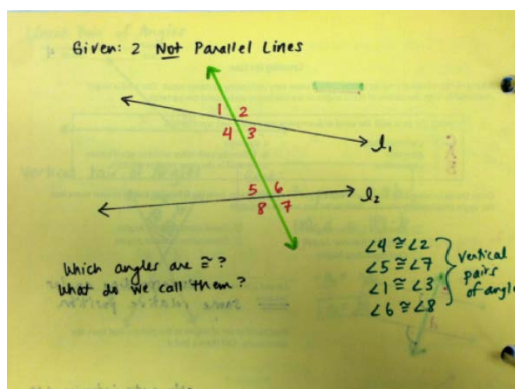 Given: 2 Not Parallel Lines
1 2
4 3
l₁
5 6
8 7
l₂
Which angles are ≅ ?
What do we call them ?
∠4 ≅ ∠2
∠5 ≅ ∠7
∠1 ≅ ∠3
∠6 ≅ ∠8
Vertical
pairs
of angle